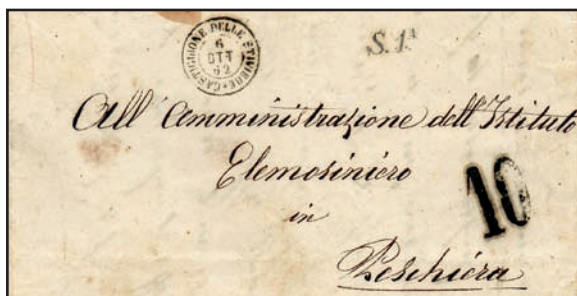 CASTIGLIONE DELLE STIVIERE
6
OTT
62
S. 1ª
All'Amministrazione dell'Istituto
Elemosiniero
in
10
Peschiera